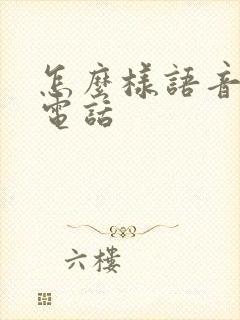 怎麼樣語音
電話
六樓